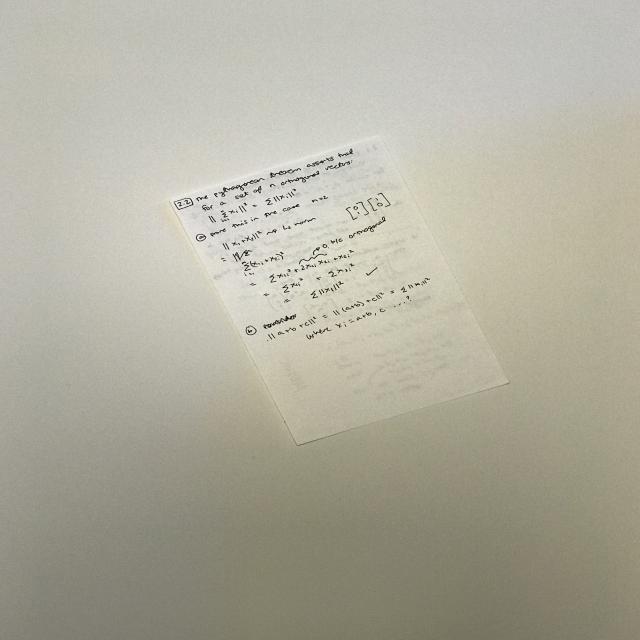 2.2 The pythagorean theorem asserts that
for a set of n orthogonal vectors:
|| Σ xᵢ ||² = Σ ||xᵢ||²
(a) prove this in the case n=2
||x₁+x₂||² → L2 norm [0 1] [1 0]
= Σ(x₁ᵢ+x₂ᵢ)² → 0 b/c orthogonal
= Σ x₁ᵢ² + 2x₁ᵢ x₂ᵢ + x₂ᵢ²
= Σx₁ᵢ² + Σx₂ᵢ²
= Σ||xᵢ||² ✓
(b) consider
||a+b+c||² = ||(a+b)+c||² = Σ||xᵢ||²
where xᵢ = a+b, c ...?